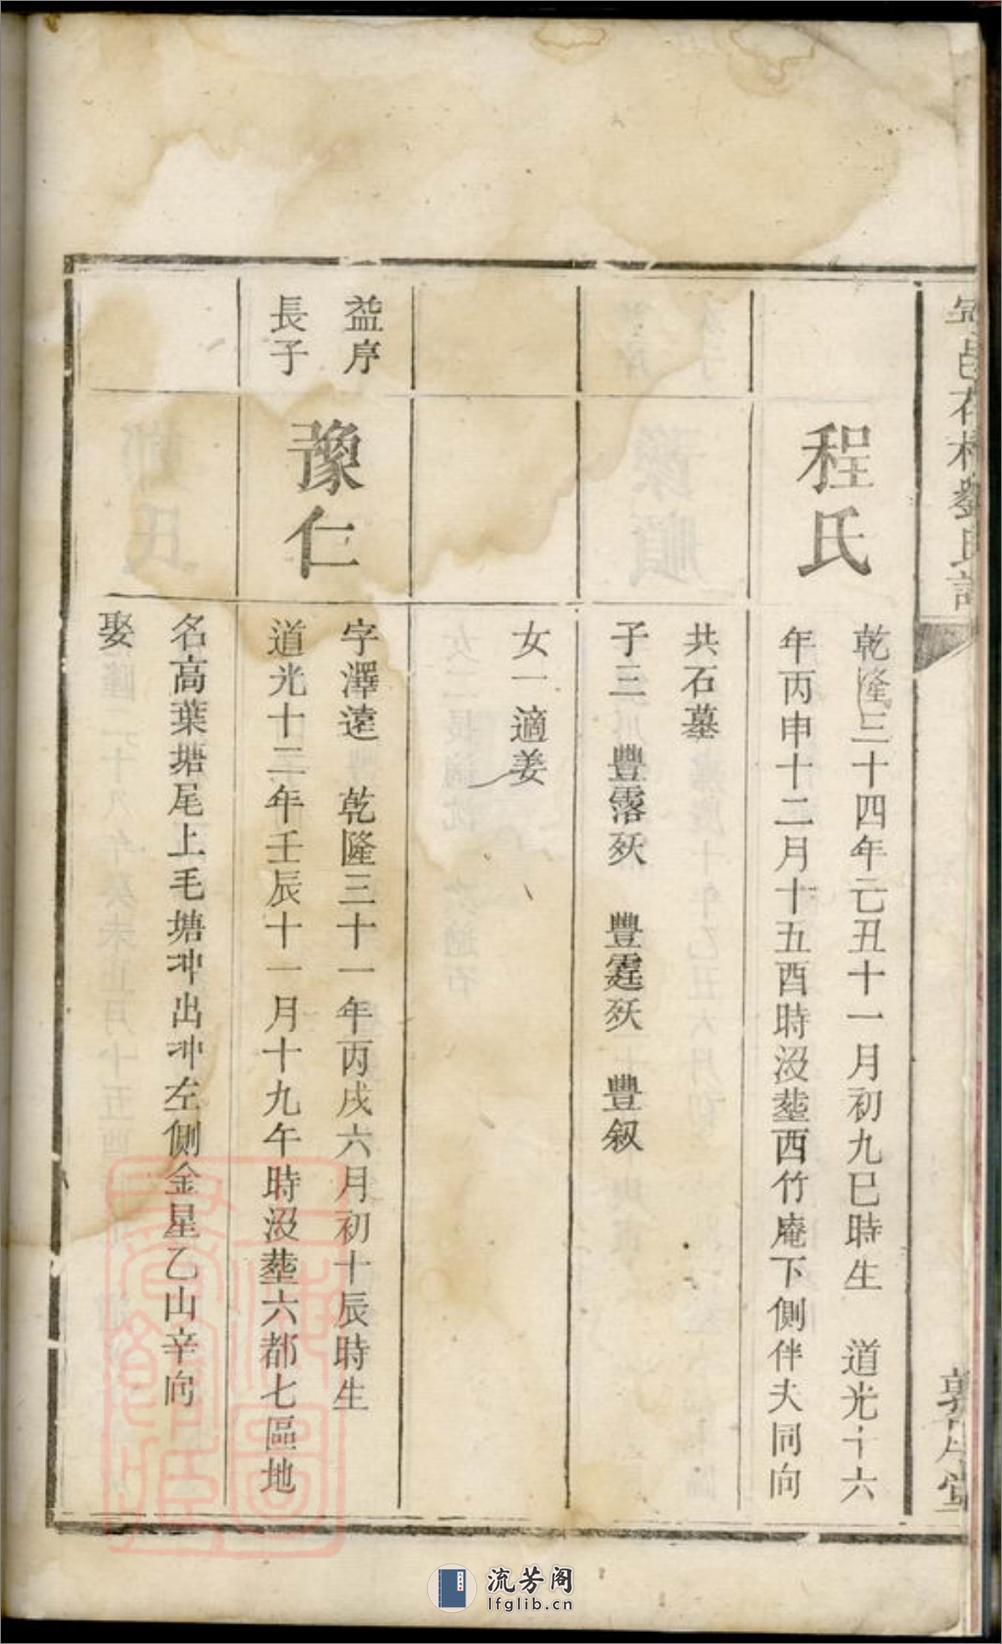 程氏
乾隆三十四年己丑十一月初九巳時生　道光十六
年丙申十二月十五酉時没塟西竹庵下側伴夫同向
共石墓
子三　豐霑殀　豐霆殀　豐叙
女一適姜
益序
長子
豫仁
字澤遠　乾隆三十一年丙戌六月初十辰時生
道光十二年壬辰十一月十九午時没塟六都七區地
名高葉塘尾上毛塘冲出冲左側金星乙山辛向
娶
流芳阁
lfglib.cn